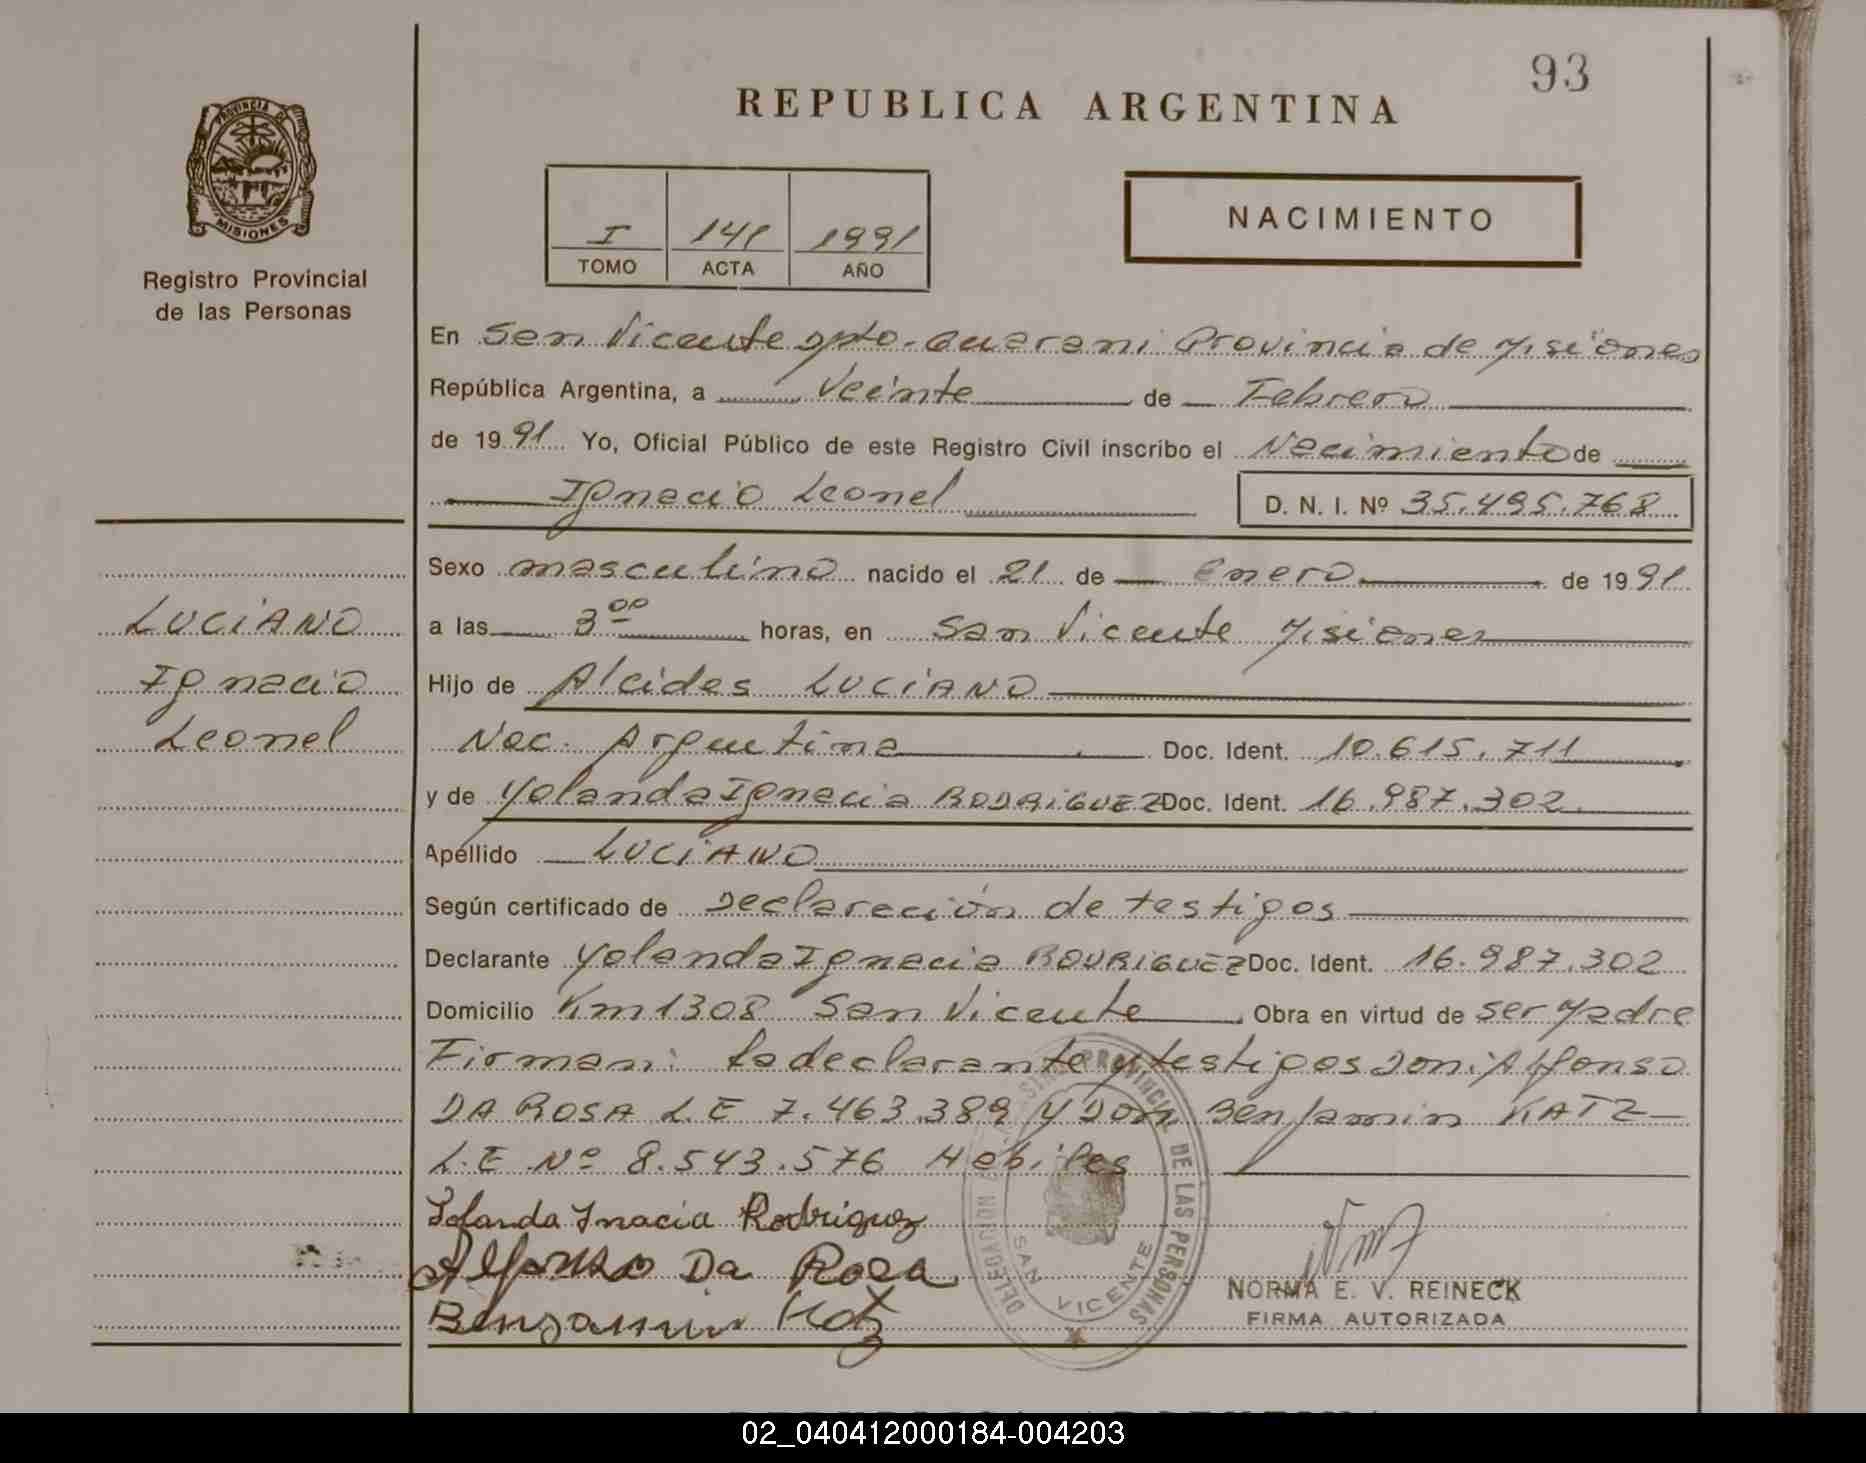 93
REPUBLICA ARGENTINA
PROVINCIA DE
MISIONES
Registro Provincial
de las Personas
I 141 1991
TOMO ACTA AÑO
NACIMIENTO
En San Vicente Dpto. Guarani Provincia de Misiones
República Argentina, a Veinte de Febrero
de 1991 Yo, Oficial Público de este Registro Civil inscribo el Nacimiento de
Ignacio Leonel D. N. I. Nº 35.495.768
Sexo masculino nacido el 21 de Enero de 1991
a las 3 00 horas, en San Vicente Misiones
Hijo de Alcides LUCIANO
Nac. Argentina Doc. Ident. 10.615.711
y de Yolanda Ignacia RODRIGUEZ Doc. Ident. 16.987.302
Apellido LUCIANO
Según certificado de Declaración de testigos
Declarante Yolanda Ignacia RODRIGUEZ Doc. Ident. 16.987.302
Domicilio Km 1308 San Vicente Obra en virtud de ser Madre
Firman: La declarante y testigos Don: Alfonso
DA ROSA L.E 7.463.389 y Don Benjamin KATZ
L.E Nº 8.543.576 Habiles
Iolanda Inacia Rodriguez
Alfonso Da Rosa
Benjamin Katz
LUCIANO
Ignacio
Leonel
PROVINCIAL DE LAS PERSONAS
DELEGACION
SAN VICENTE
NORMA E. V. REINECK
FIRMA AUTORIZADA
02_040412000184-004203